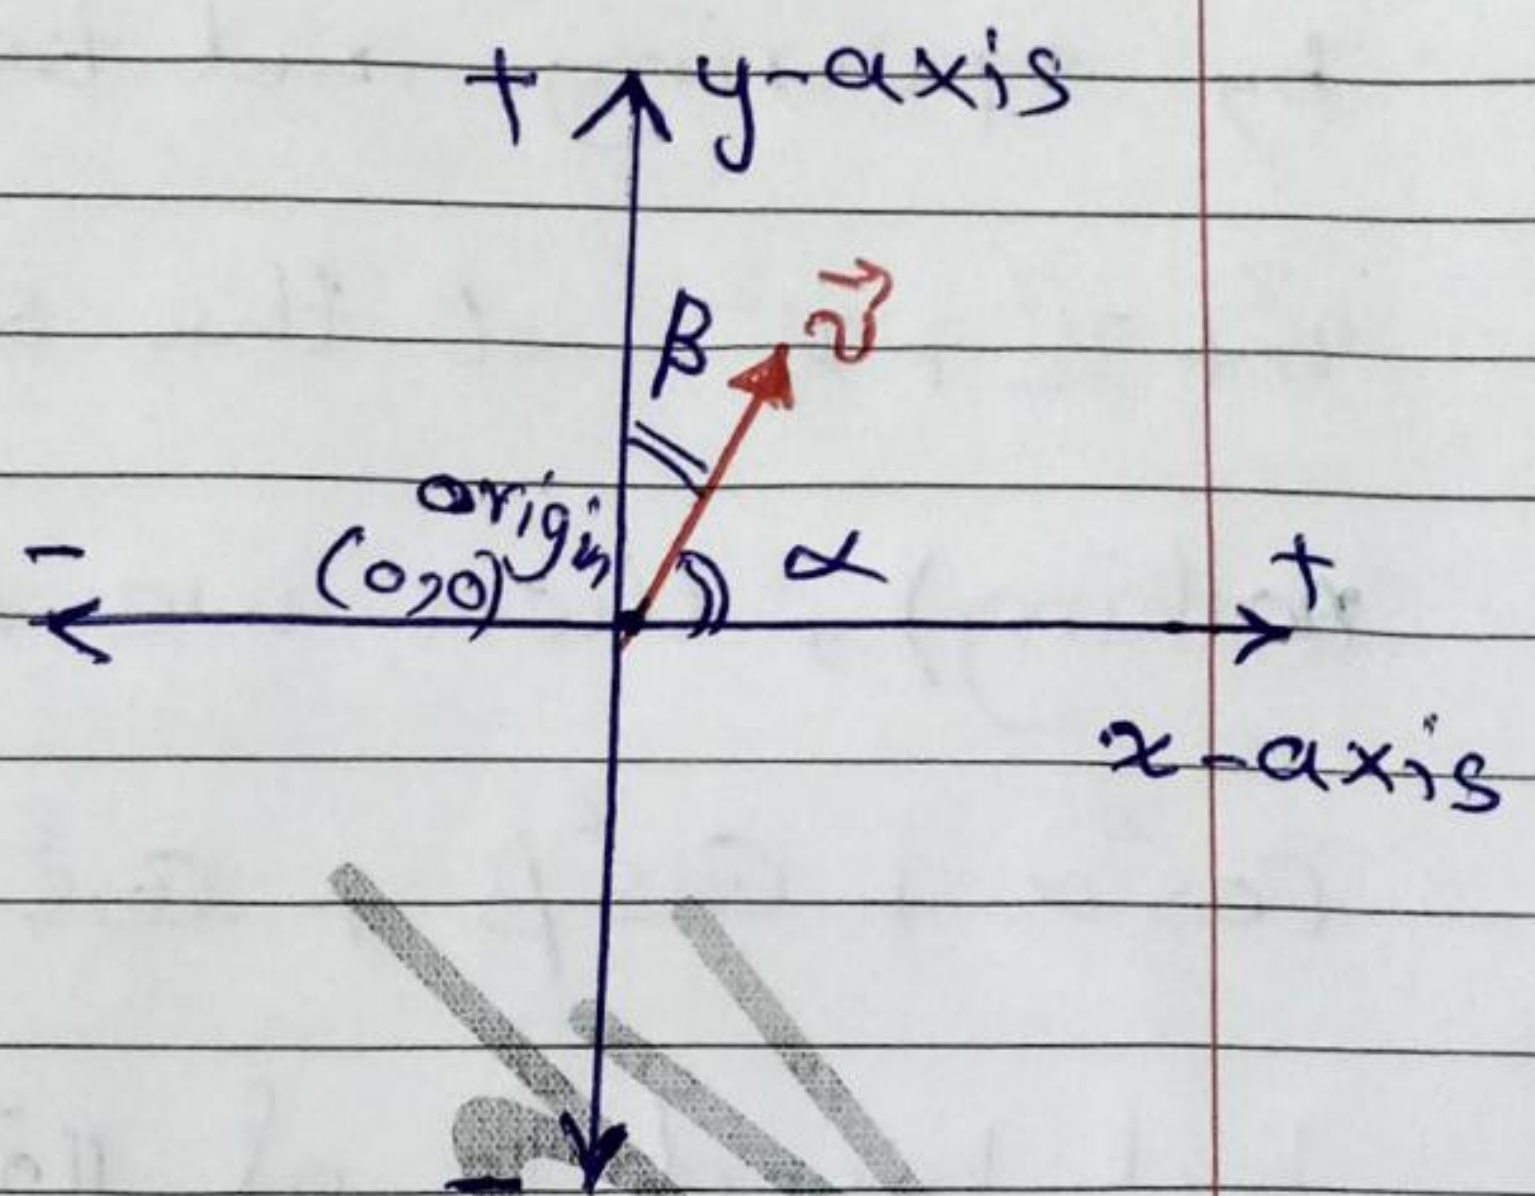 + y-axis
v⃗
β
origin
(0,0)
α
-
+
x-axis
-